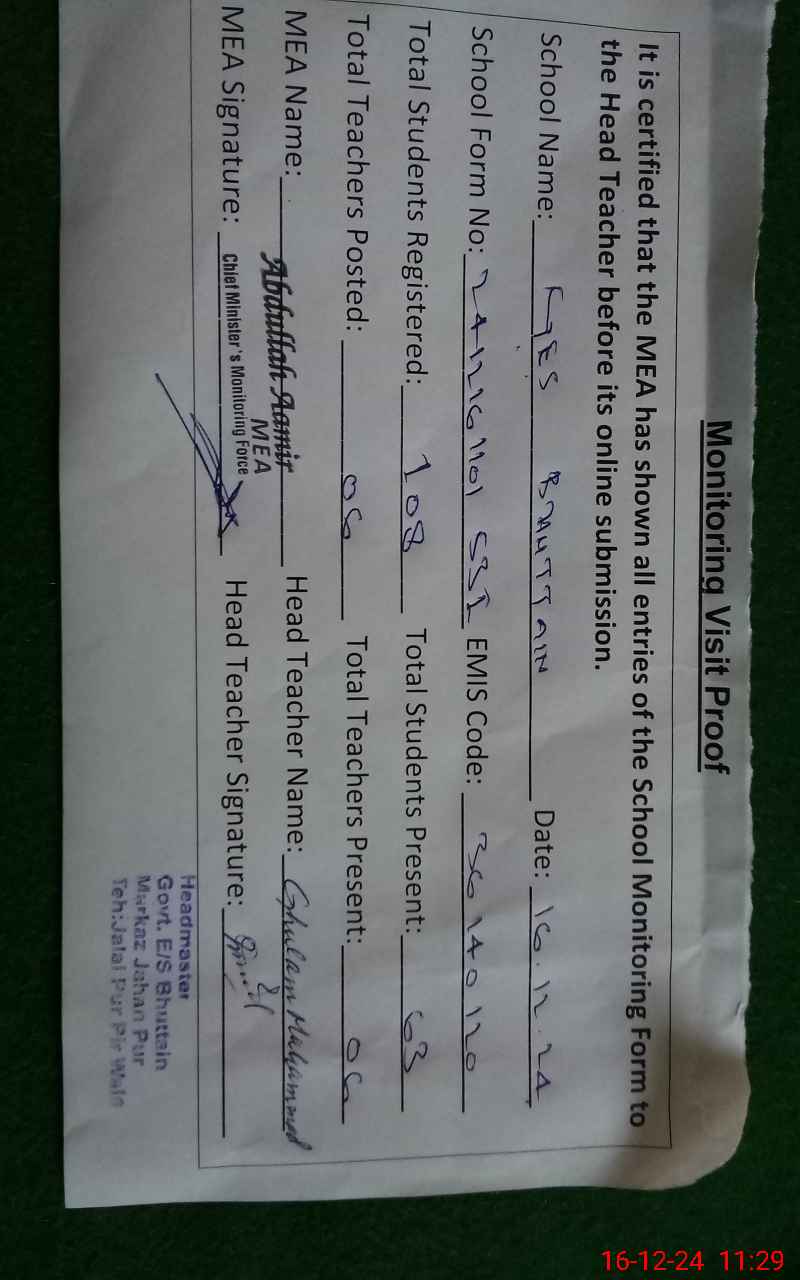 Monitoring Visit Proof
It is certified that the MEA has shown all entries of the School Monitoring Form to
the Head Teacher before its online submission.
School Name: GES BHUTTAIN Date: 16.12.24
School Form No: 2412161101 531 EMIS Code: 36140120
Total Students Registered: 108 Total Students Present: 63
Total Teachers Posted: 06 Total Teachers Present: 06
MEA Name: Abdullah Aamir Head Teacher Name: Ghulam Muhammad
MEA
Chief Minister's Monitoring Force
MEA Signature: Head Teacher Signature:
Headmaster
Govt. E/S Bhuttain
Markaz Jahan Pur
Teh:Jalal Pur Pir Wala
16-12-24 11:29